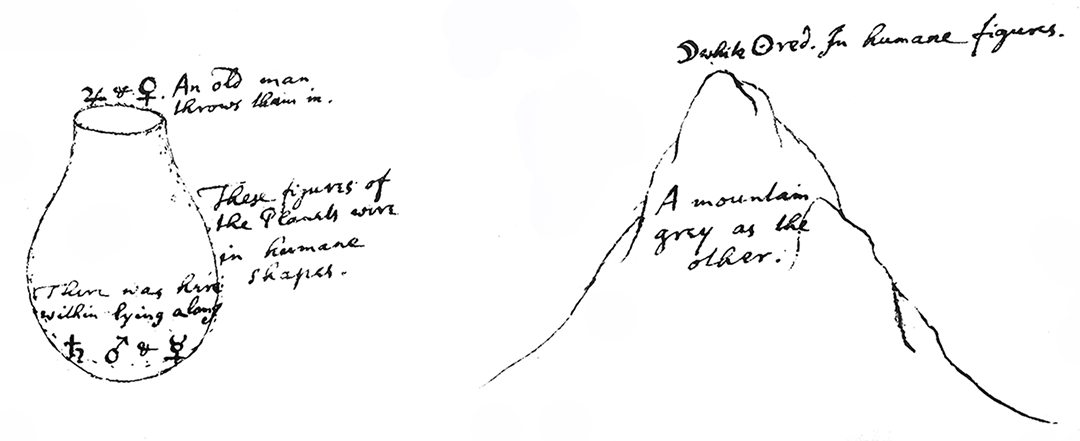 ♃ & ♀. An old man
throws them in.
These figures of
the Planets were
in humane
shapes.
There was here
within lying along
♄ ♂ & ☿
☽ white ☉ red. In humane figures.
A mountain
grey as the
other.